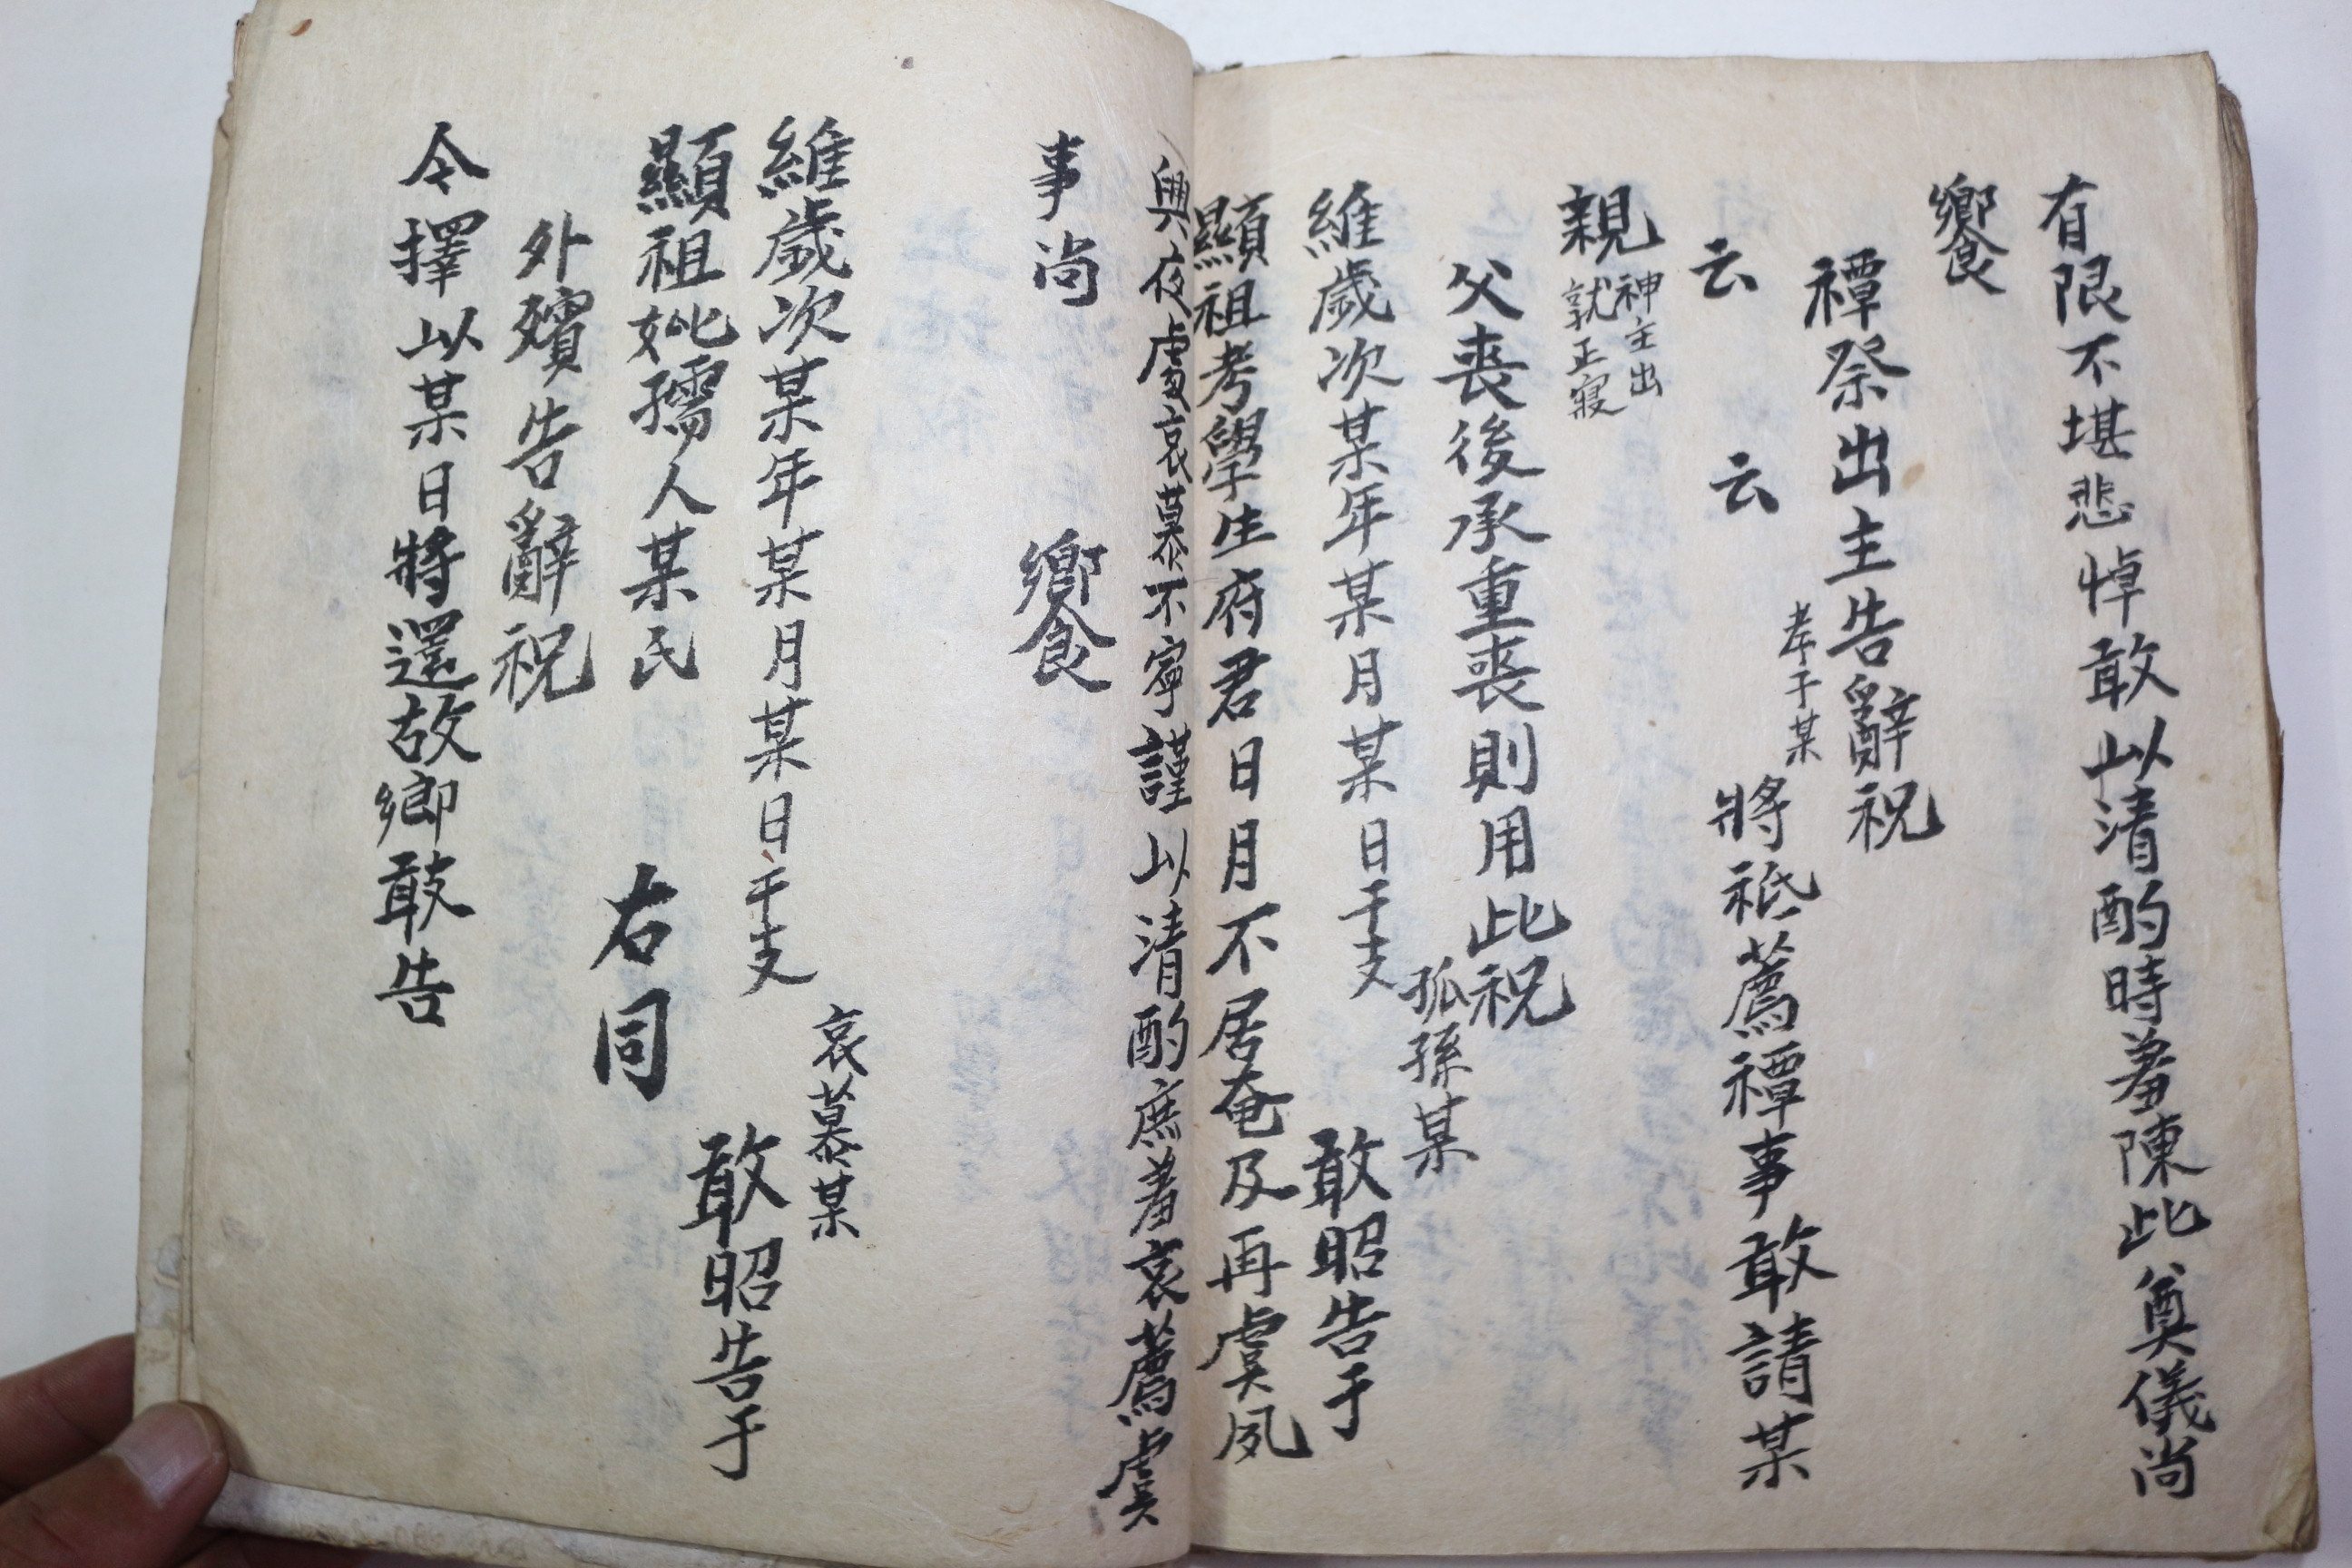 有限不堪悲悼敢以清酌時羞陳此奠儀尚
饗
禫祭出主告辭祝
云云 孝子某 將祗薦禫事敢請某
親 神主出就正寢
父喪後承重喪則用此祝
孤孫某
維歲次某年某月某日干支 敢昭告于
顯祖考學生府君日月不居奄及再虞夙
興夜處哀慕不寧謹以清酌庶羞哀薦虞
事尚 饗
哀慕某
維歲次某年某月某日干支 敢昭告于
顯祖妣孺人某氏 右同
外殯告辭祝
今擇以某日將還故鄉敢告